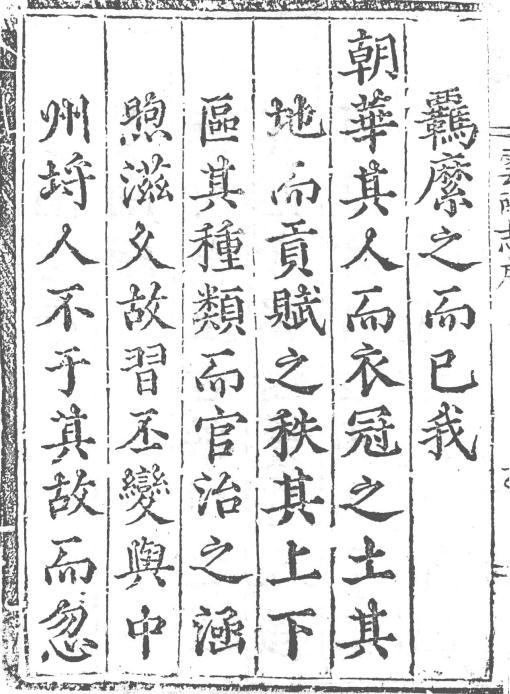 羈縻之而已我
朝華其人而衣冠之土其
地而貢賦之秩其上下
區其種類而官治之涵
煦滋久故習丕變與中
州埒人不于其故而忽